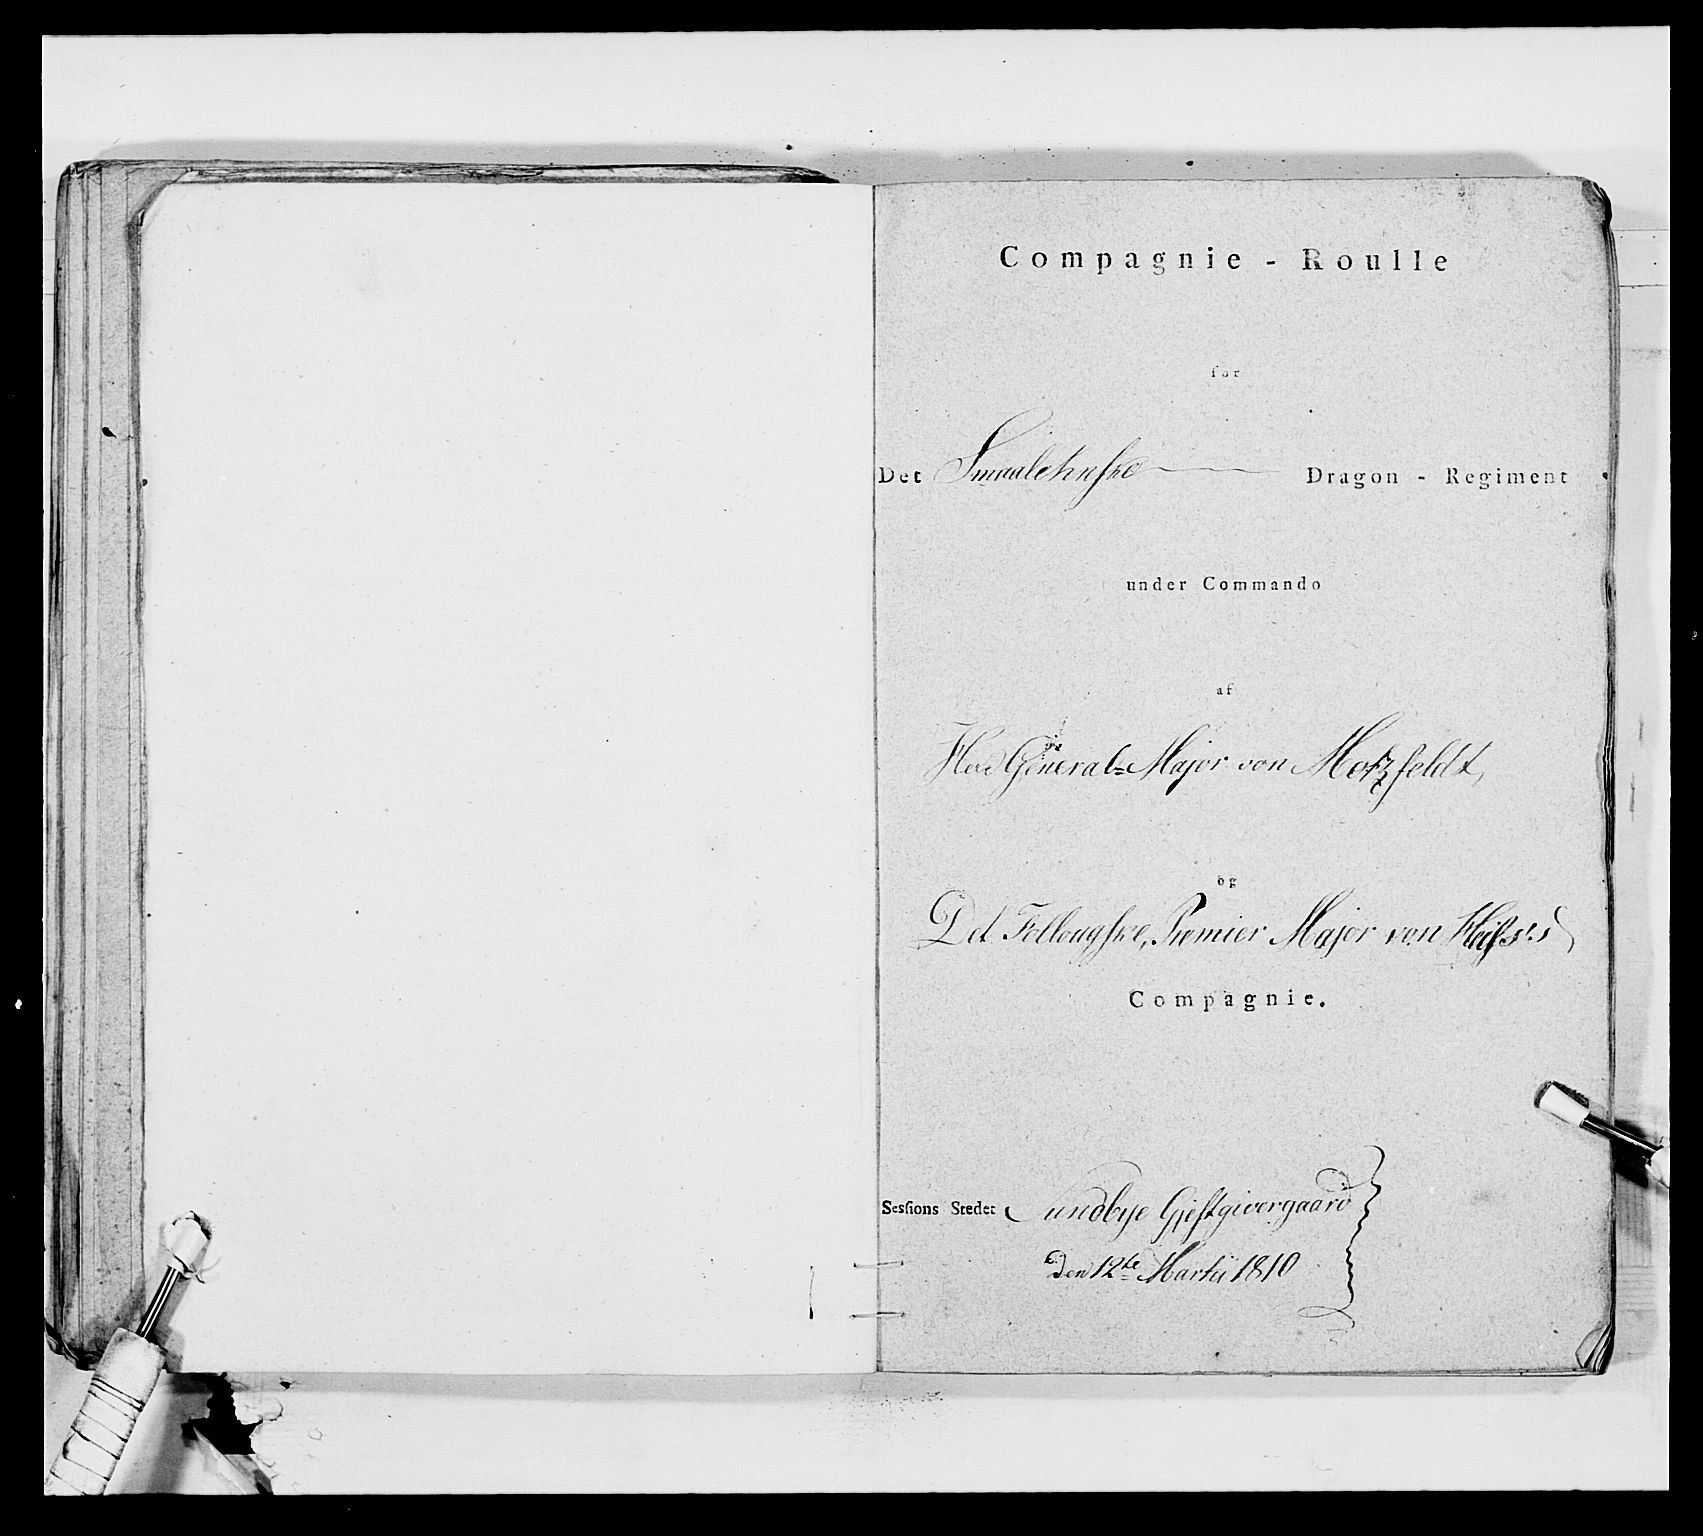 Compagnie - Roulle
for
Det Smaalehnske Dragon - Regiment
under Commando
af
Herr General-Major von Motzfeldt,
og
Det Follougske, Premier Major von
Compagnie.
Sessions Stedet Sundbye Gjestgivergaard
Den 12te Martii 1810